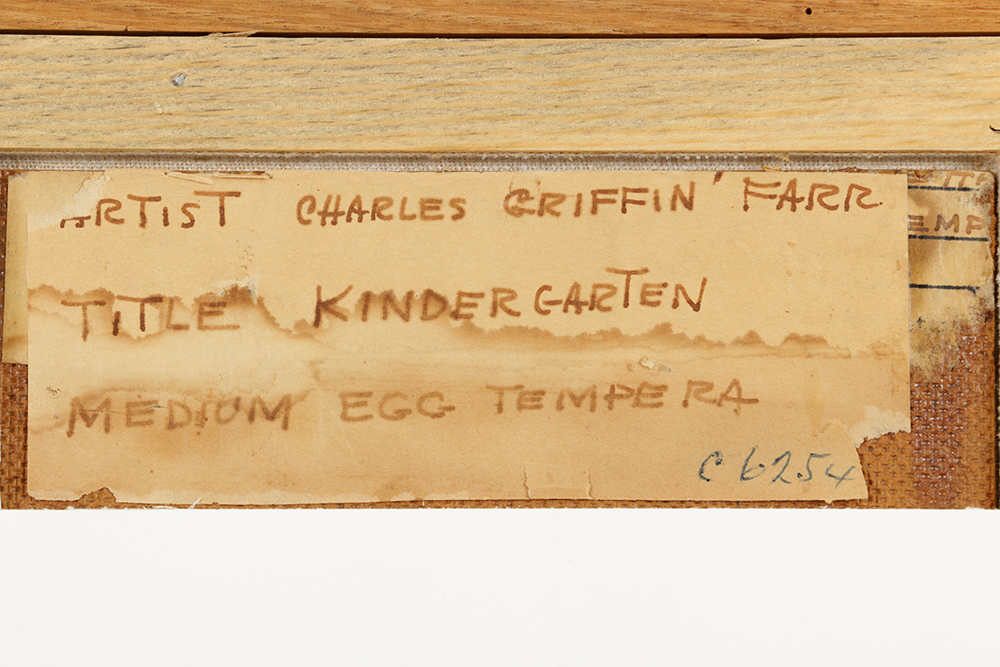 ARTIST CHARLES GRIFFIN FARR
TITLE KINDERGARTEN
MEDIUM EGG TEMPERA
C 6254